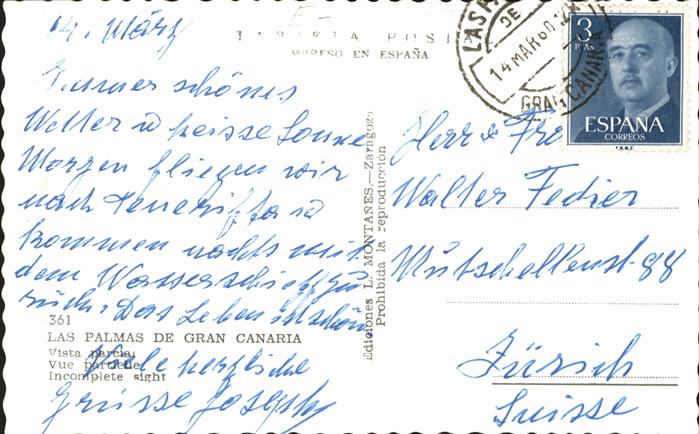 14. März
TARJETA POSTAL
IMPRESO EN ESPAÑA
Immer schönes
Wetter u heisse Sonne
Morgen fliegen wir
nach Teneriffa u
kommen nachts mit
dem Wasserschiff zu-
rück. Das Leben ist schön
361
LAS PALMAS DE GRAN CANARIA
Vista parcial
Vue partielle
Incomplete sight
Viele herzliche
Grüsse Joseph
Ediciones L. MONTAÑES.—Zaragoza
Prohibida la reproducción
LAS
DE
14 MAR 60
GRAN CANARIA
3
PTAS
ESPAÑA
CORREOS
F.N.M.T.
Herr &
Walter Fedier
Mutschellenst. 88
Zürich
Suisse